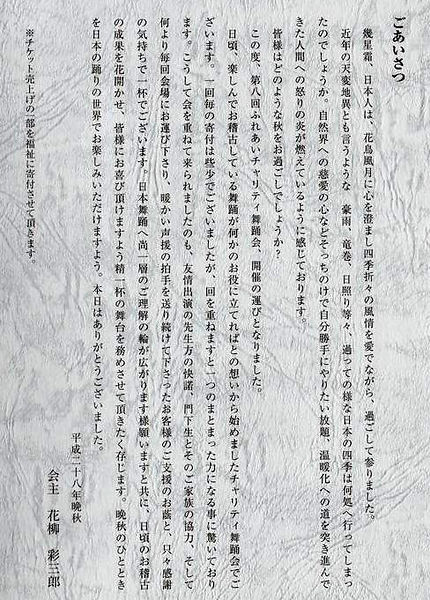 ごあいさつ
幾星霜、日本人は、花鳥風月に心を澄まし四季折々の風情を愛でながら、過ごして参りました。
近年の天変地異とも言うような　豪雨、竜巻、日照り等々、過っての様な日本の四季は何処へ行ってしまっ
たのでしょうか。自然界への慈愛の心などそっちのけで自分勝手にやりたい放題、温暖化への道を突き進んで
きた人間への怒りの炎が燃えているように感じております。
皆様はどのような秋をお過ごしでしょうか？
この度、第八回ふれあいチャリティ舞踊会、開催の運びとなりました。
日頃、楽しんでお稽古している舞踊が何かのお役に立てればとの想いから始めましたチャリティ舞踊会でご
ざいます。一回毎の寄付は些少でございましたが、回を重ねますと一つのまとまった力になる事に驚いており
ます。こうして会を重ねて来られましたのも、友情出演の先生方の快諾、門下生とそのご家族の協力、そして
何より毎回会場にお運び下さり、暖かい声援の拍手を送り続けて下さったお客様のご支援のお蔭と、只々感謝
の気持ちで一杯でございます。日本舞踊へ尚一層のご理解の輪が広がります様願いますと共に、日頃のお稽古
の成果を花開かせ、皆様にお喜び頂けますよう精一杯の舞台を務めさせて頂きたく存じます。晩秋のひととき
を日本の踊りの世界でお楽しみいただけますよう。本日はありがとうございました。
平成二十八年晩秋
会主　花柳　彩三郎
※チケット売上げの一部を福祉に寄付させて頂きます。